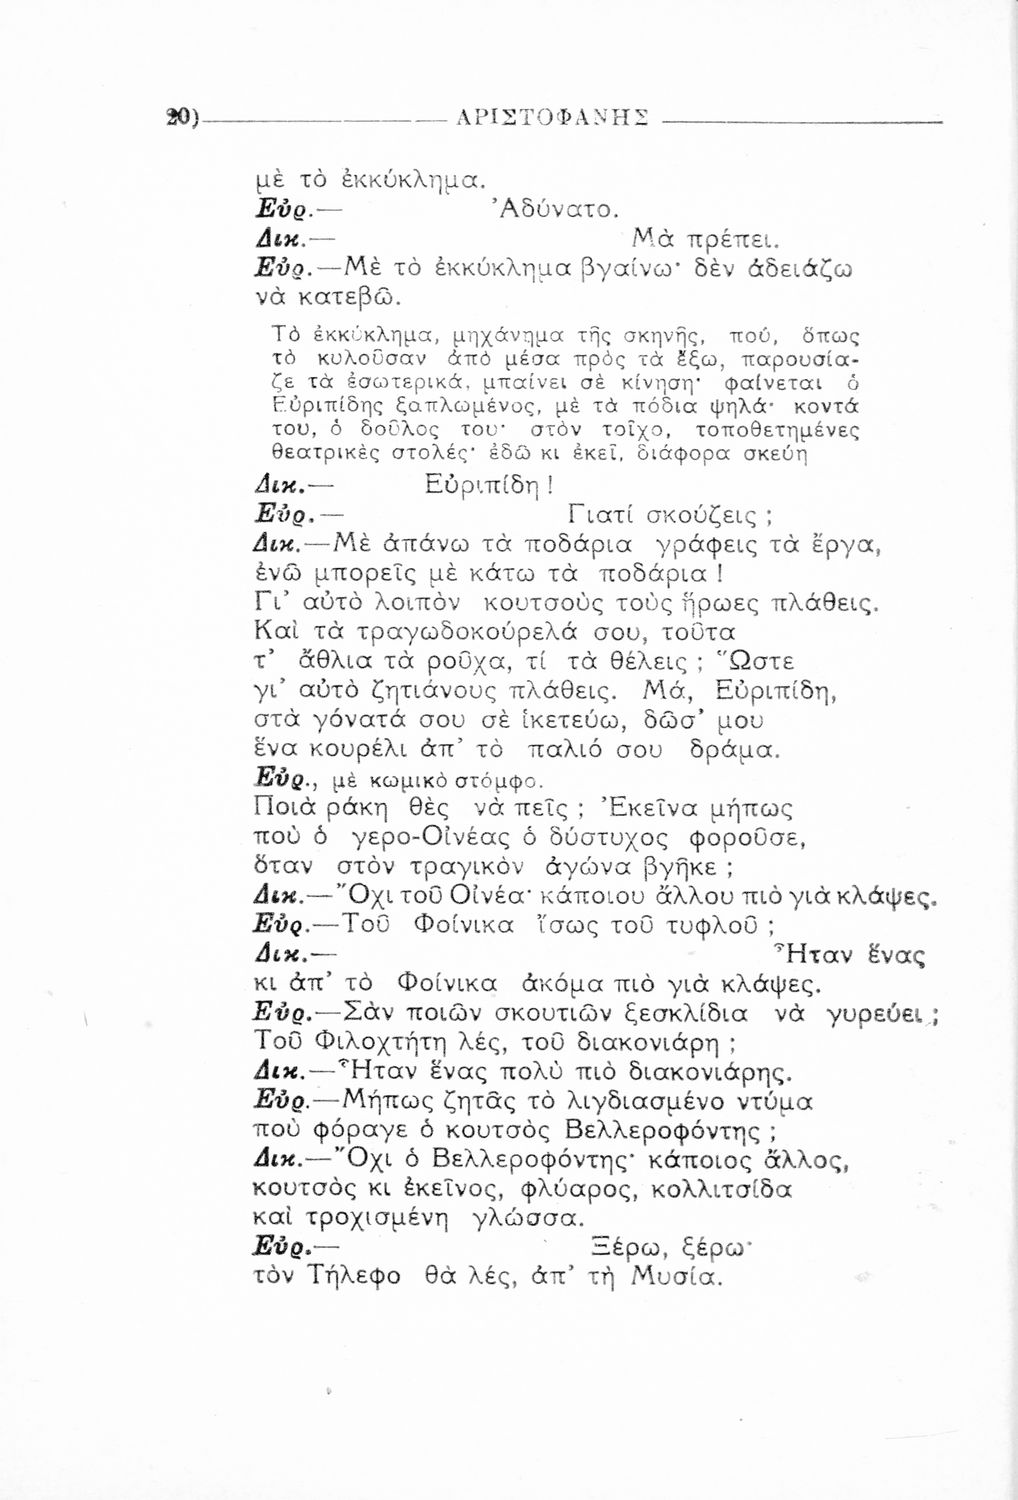 20) ΑΡΙΣΤΟΦΑΝΗΣ
μὲ τὸ ἐκκύκλημα.
Εὐρ.— Ἀδύνατο.
Δικ.— Μὰ πρέπει.
Εὐρ.—Μὲ τὸ ἐκκύκλημα βγαίνω· δὲν ἀδειάζω
νὰ κατεβῶ.
Τὸ ἐκκύκλημα, μηχάνημα τῆς σκηνῆς, πού, ὅπως
τὸ κυλοῦσαν ἀπὸ μέσα πρὸς τὰ ἔξω, παρουσία-
ζε τὰ ἐσωτερικά, μπαίνει σὲ κίνηση· φαίνεται ὁ
Εὐριπίδης ξαπλωμένος, μὲ τὰ πόδια ψηλά· κοντά
του, ὁ δοῦλος του· στὸν τοῖχο, τοποθετημένες
θεατρικὲς στολές· ἐδῶ κι ἐκεῖ, διάφορα σκεύη
Δικ.— Εὐριπίδη !
Εὐρ.— Γιατί σκούζεις ;
Δικ.—Μὲ ἀπάνω τὰ ποδάρια γράφεις τὰ ἔργα,
ἐνῶ μπορεῖς μὲ κάτω τὰ ποδάρια !
Γι’ αὐτὸ λοιπὸν κουτσοὺς τοὺς ἥρωες πλάθεις.
Καὶ τὰ τραγωδοκούρελά σου, τοῦτα
τ’ ἄθλια τὰ ροῦχα, τί τὰ θέλεις ; Ὥστε
γι’ αὐτὸ ζητιάνους πλάθεις. Μά, Εὐριπίδη,
στὰ γόνατά σου σὲ ἱκετεύω, δῶσ’ μου
ἕνα κουρέλι ἀπ’ τὸ παλιό σου δράμα.
Εὐρ., μὲ κωμικὸ στόμφο.
Ποιὰ ράκη θὲς νὰ πεῖς ; Ἐκεῖνα μήπως
ποὺ ὁ γερο-Οἰνέας ὁ δύστυχος φοροῦσε,
ὅταν στὸν τραγικὸν ἀγώνα βγῆκε ;
Δικ.—Ὄχι τοῦ Οἰνέα· κάποιου ἄλλου πιὸ γιὰ κλάψες.
Εὐρ.—Τοῦ Φοίνικα ἴσως τοῦ τυφλοῦ ;
Δικ.— Ἦταν ἕνας
κι ἀπ’ τὸ Φοίνικα ἀκόμα πιὸ γιὰ κλάψες.
Εὐρ.—Σὰν ποιῶν σκουτιῶν ξεσκλίδια νὰ γυρεύει ;
Τοῦ Φιλοχτήτη λές, τοῦ διακονιάρη ;
Δικ.—Ἦταν ἕνας πολὺ πιὸ διακονιάρης.
Εὐρ.—Μήπως ζητᾶς τὸ λιγδιασμένο ντύμα
ποὺ φόραγε ὁ κουτσὸς Βελλεροφόντης ;
Δικ.—Ὄχι ὁ Βελλεροφόντης· κάποιος ἄλλος,
κουτσὸς κι ἐκεῖνος, φλύαρος, κολλιτσίδα
καὶ τροχισμένη γλώσσα.
Εὐρ.— Ξέρω, ξέρω·
τὸν Τήλεφο θὰ λές, ἀπ’ τὴ Μυσία.